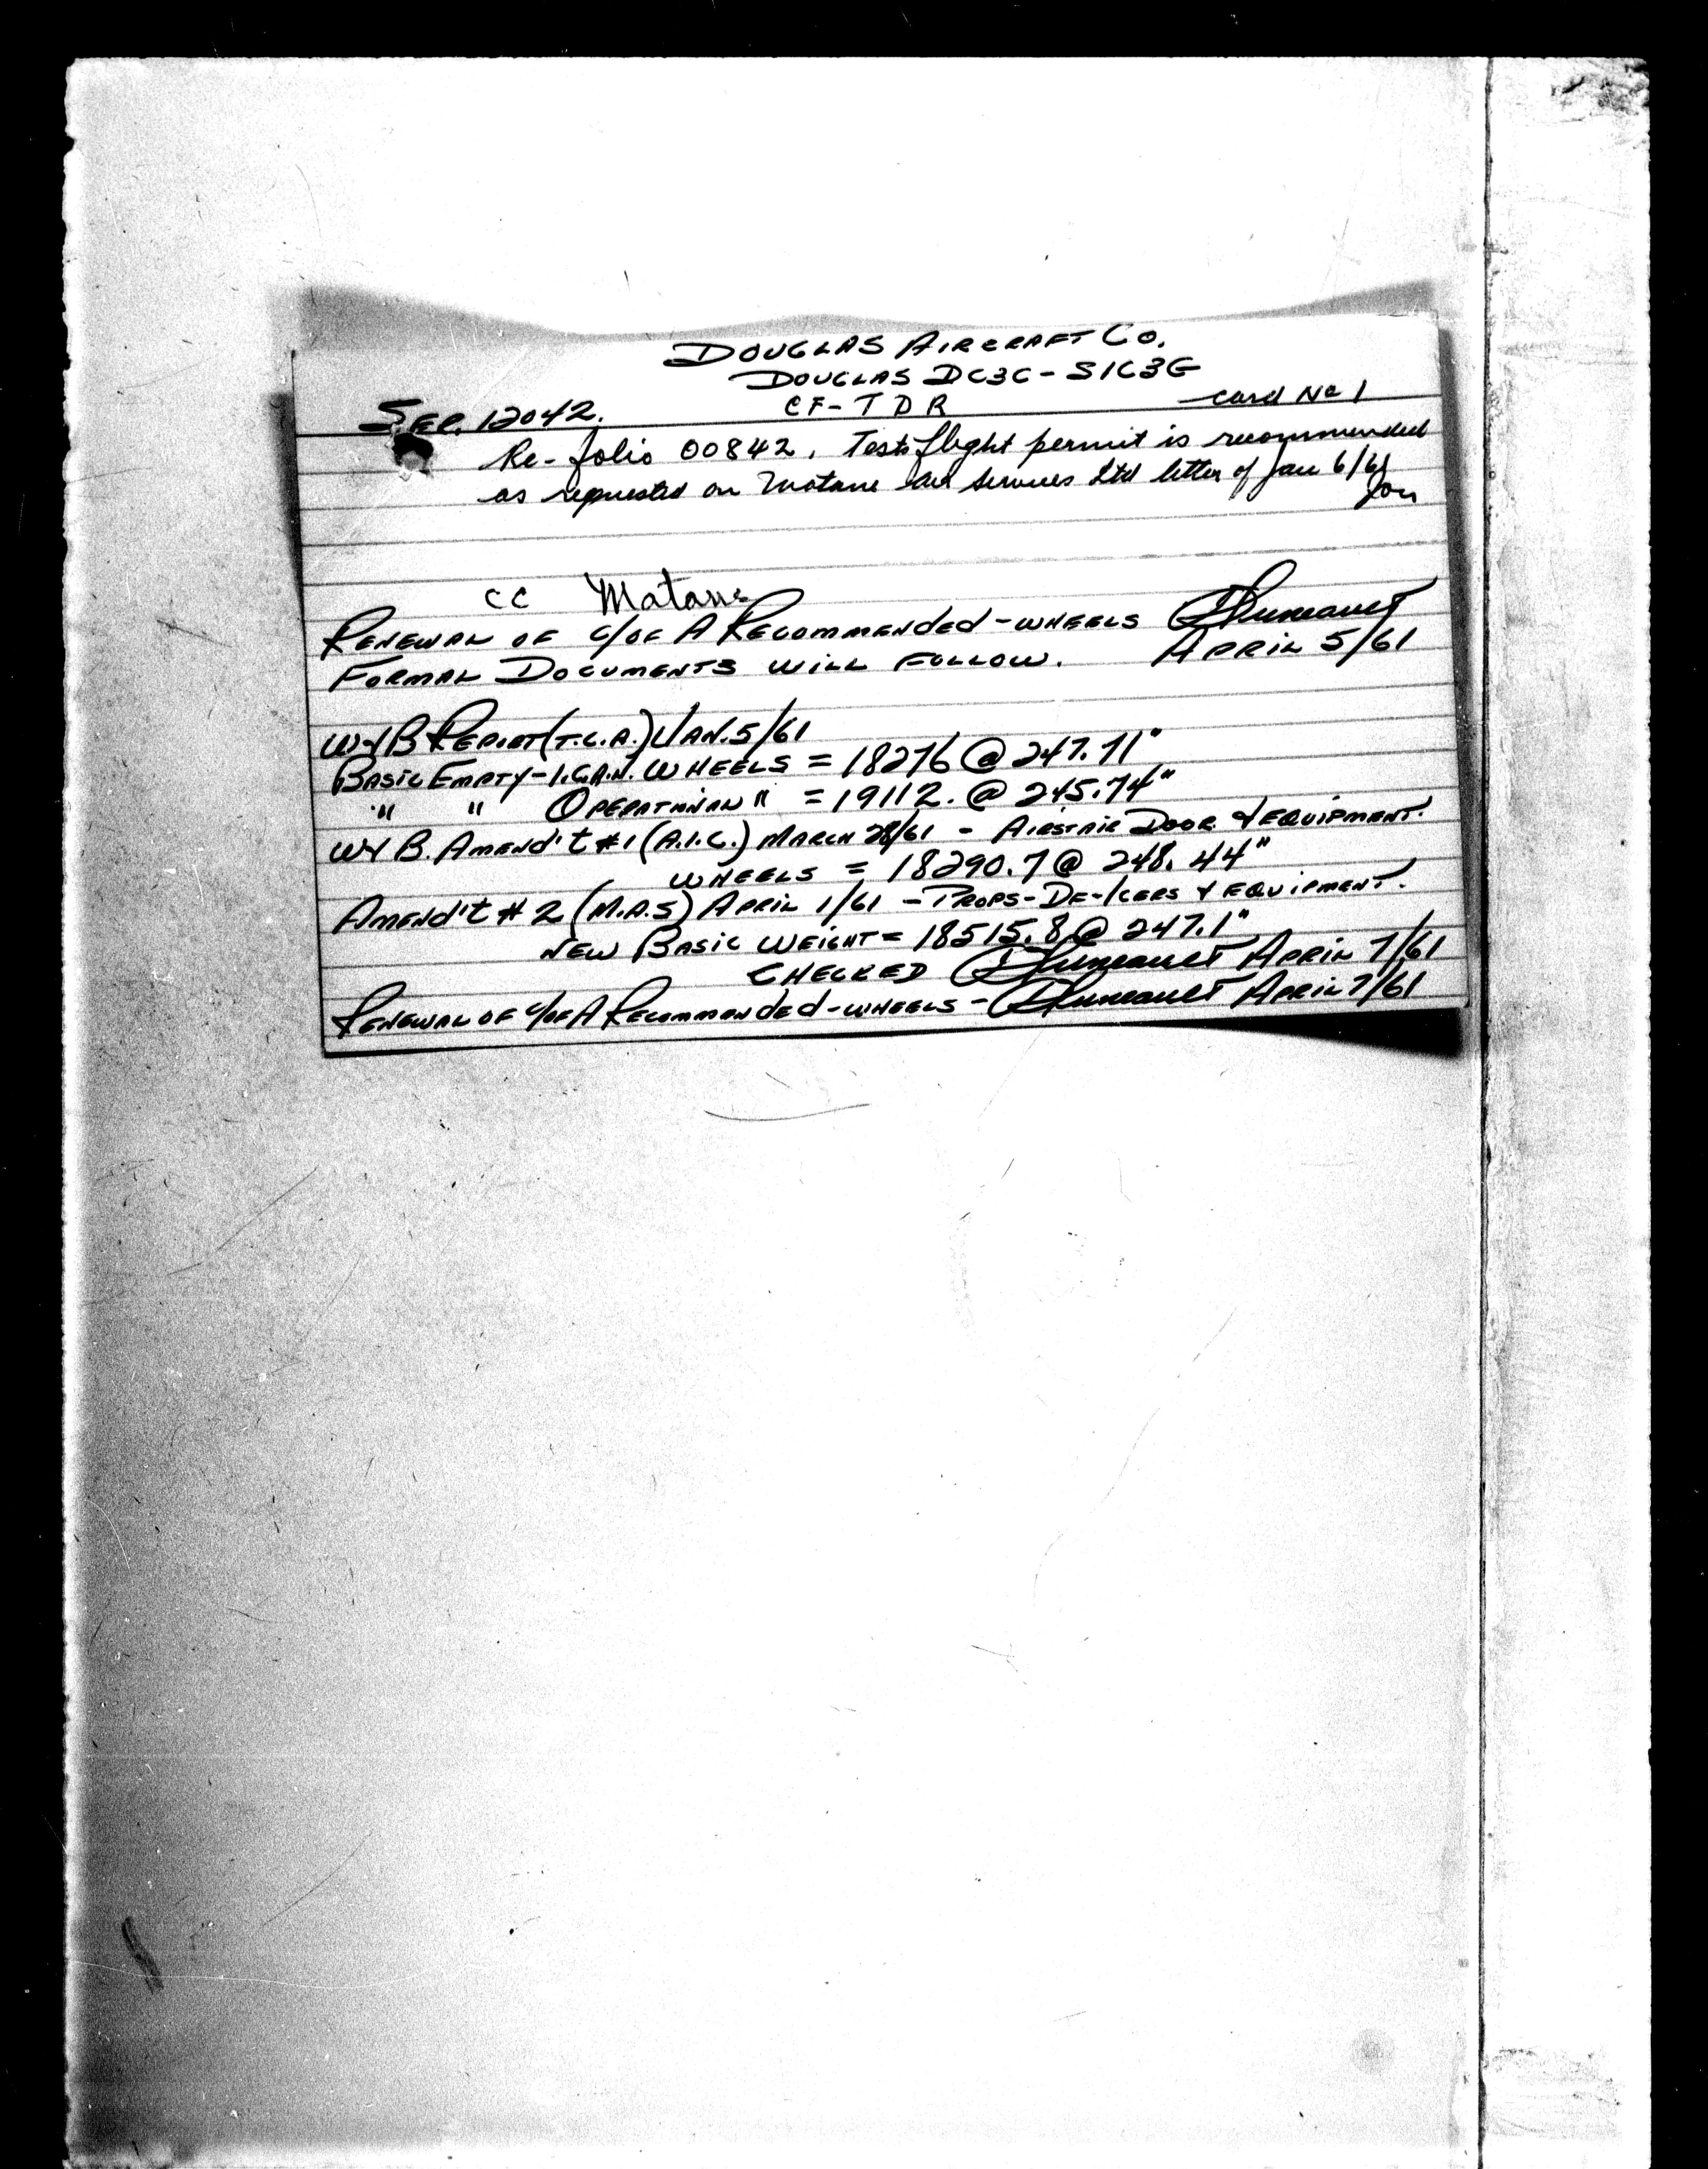 DOUGLAS AIRCRAFT CO.
DOUGLAS DC3C - S1C3G
SER. 12042. CF-TDR card No 1
Re-folio 00842. Test flight permit is recommended
as requested on Matane Air Services Ltd letter of Jan 6/61
CC Matane
RENEWAL OF C/OF A RECOMMENDED - WHEELS
FORMAL DOCUMENTS WILL FOLLOW. APRIL 5/61
W+B REPORT (T.C.A.) JAN. 5/61
BASIC EMPTY - I.C.A.N. WHEELS = 18276 @ 247.71"
" " OPERATIONAL " = 19112. @ 245.74"
W+B. AMEND'T #1 (A.I.C.) MARCH 28/61 - AIRSTAIR DOOR + EQUIPMENT.
WHEELS = 18290.7 @ 248.44"
AMEND'T # 2 (M.A.S) APRIL 1/61 - PROPS - DE-ICERS + EQUIPMENT.
NEW BASIC WEIGHT = 18515.8 @ 247.1"
CHECKED APRIL 7/61
RENEWAL OF C/OF A RECOMMENDED - WHEELS - APRIL 7/61